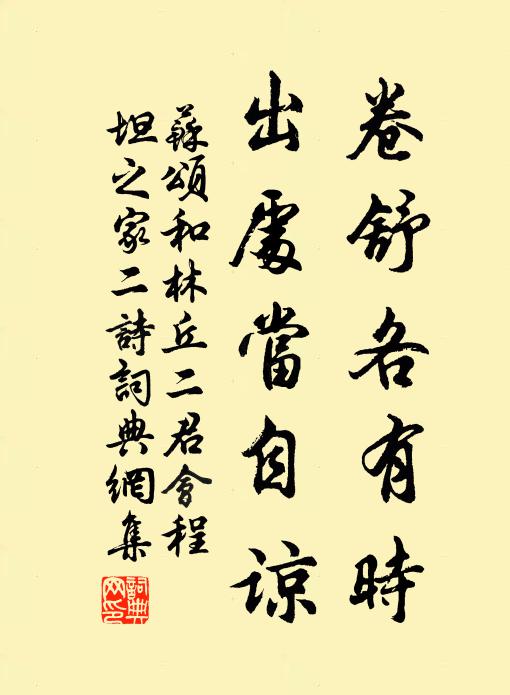 卷舒各有時
出處當自諒
蘇頌和林丘二君會程
坦之家二詩詞典網集
詞典網印